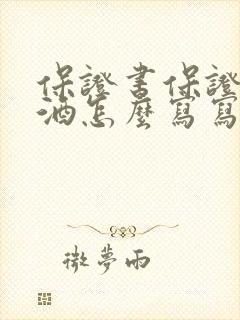 保證書保證
酒怎麼寫寫
微夢雨